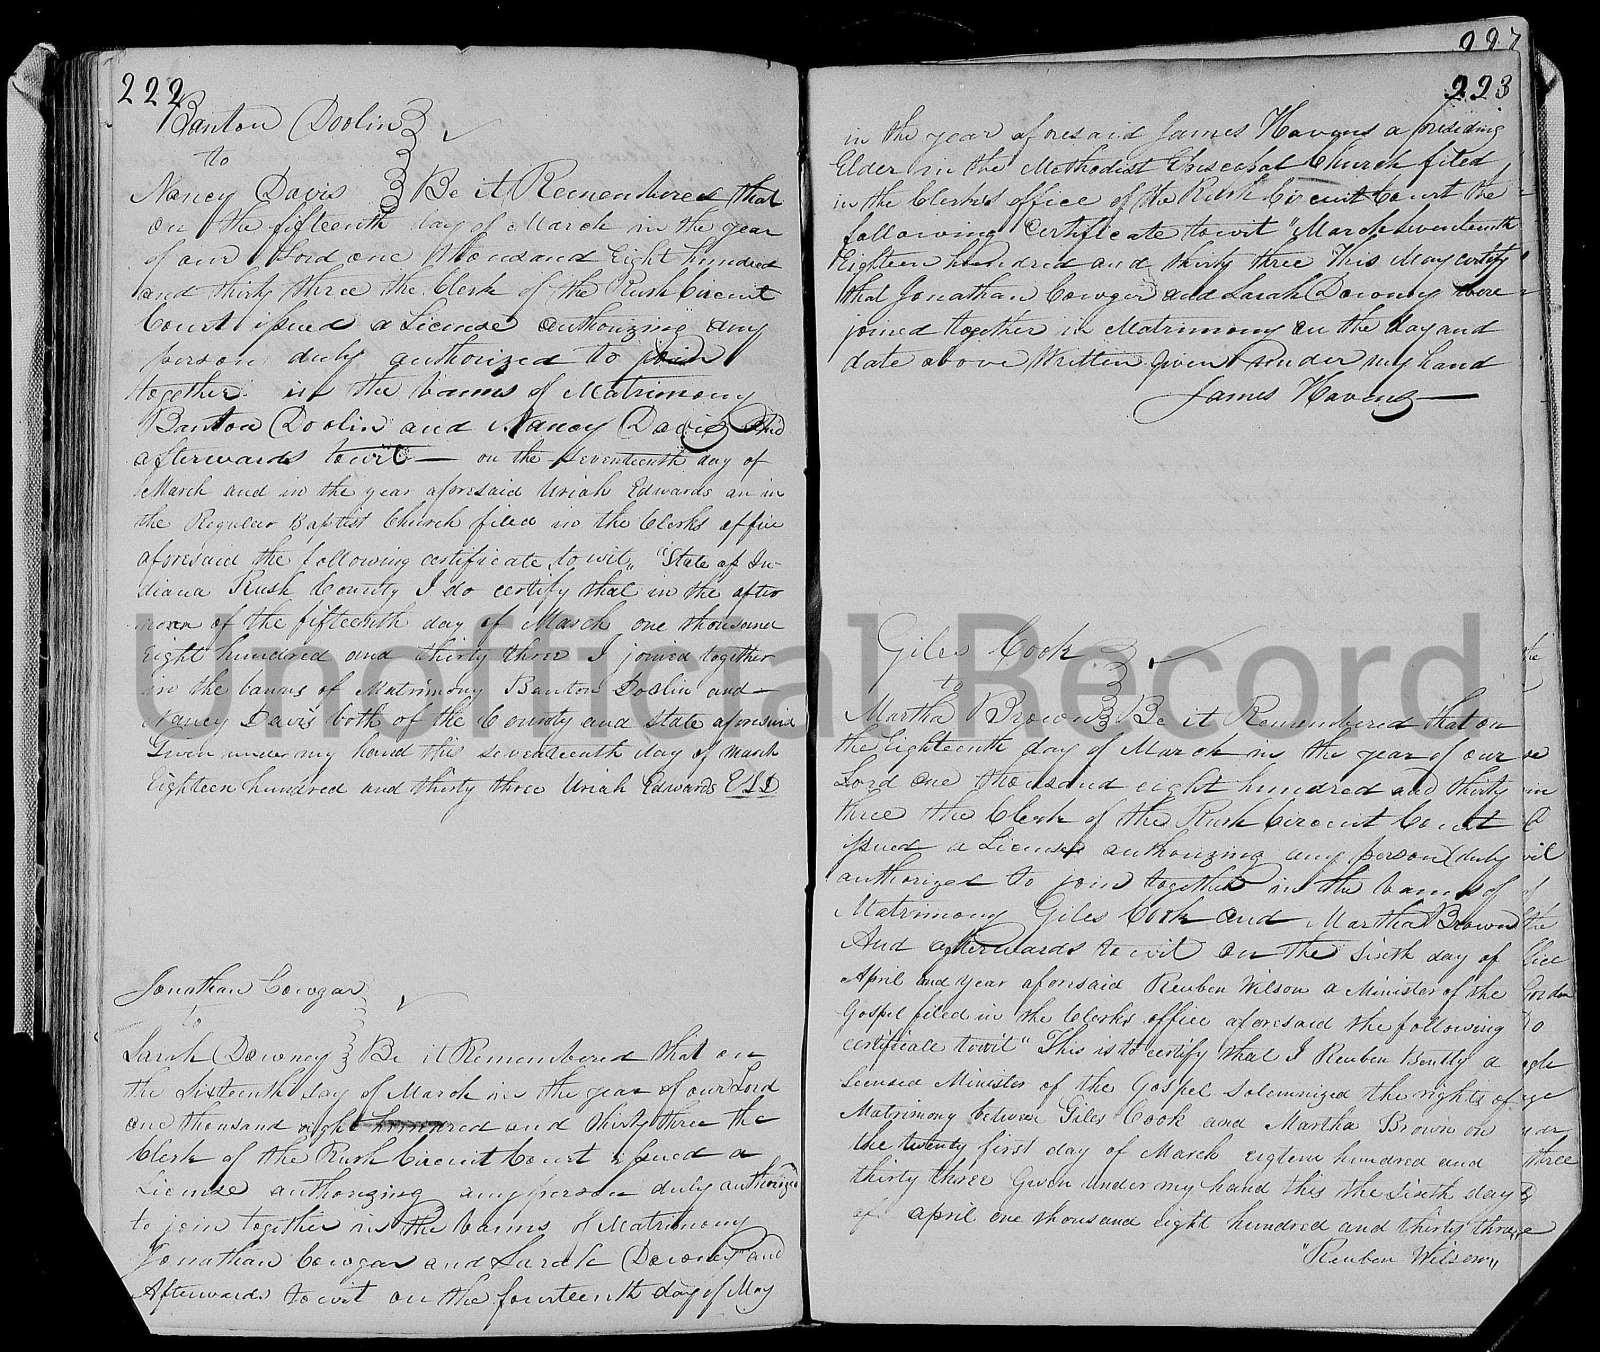 222
Banton Doolin
to
Nancy Davis Be it Remembered that
on the fifteenth day of March in the year
of our Lord one thousand Eight hundred
and thirty three the Clerk of the Rush Circuit
Court issued a License authorizing any
person duly authorized to join
together in the banns of Matrimony
Banton Doolin and Nancy Davis And
afterwards towit on the seventeenth day of
March and in the year aforesaid Uriah Edwards an in
the Reguler Baptist Church filed in the Clerks office
aforesaid the following certificate to wit, "State of In-
diana Rush County I do certify that in the after
noon of the fifteenth day of March one thousand
Eight hundred and thirty three I joined together
in the banns of Matrimony Banton Doolin and
Nancy Davis both of the County and state aforesaid
Given under my hand this seventeenth day of March
Eighteen hundred and thirty three Uriah Edwards
Jonathan Cowgar
to
Sarah Downey Be it Remembered that on
the sixteenth day of March in the year of our Lord
one thousand eight hundred and thirty three the
Clerk of the Rush Circuit Court issued a
License authorizing any person duly authorized
to join together in the banns of Matrimony
Jonathan Cowgar and Sarah Downey and
Afterwards towit on the fourteenth day of May
227
223
in the year aforesaid James Havens a presiding
Elder in the Methodist Episcopal Church filed
in the Clerks office of the Rush Circuit Court the
following Certificate towit "March seventeenth
Eighteen hundred and thirty three This May certify
that Jonathan Cowger and Sarah Downey were
joined together in Matrimony on the day and
date above Written Given under my hand
James Havens
Giles Cook
to
Martha Brown Be it Remembered that on
the Eighteenth day of March in the year of our
Lord one thousand eight hundred and thirty
three the Clerk of the Rush Circuit Court
issued a License authorizing any person duly
authorized to join together in the banns of
Matrimony Giles Cook and Martha Brown
And afterwards to wit on the sixth day of
April and year aforesaid Reuben Wilson a Minister of the
Gospel filed in the Clerks office aforesaid the following
certificate towit "This is to certify that I Reuben Bently a
licensed Minister of the Gospel solemnized the rights of
Matrimony between Giles Cook and Martha Brown on
the twenty first day of March eigteen hundred and
thirty three Given under my hand this the sixth day
of april one thousand eight hundred and thirty three
"Reuben Wilson"
Unofficial Record